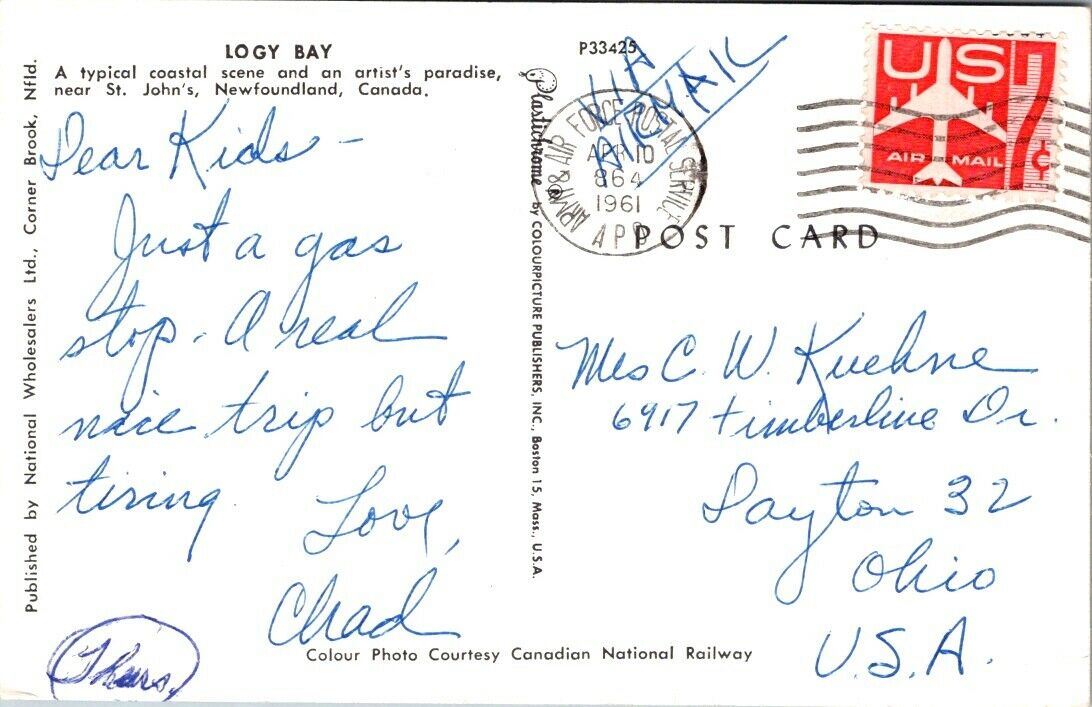 LOGY BAY
A typical coastal scene and an artist's paradise,
near St. John's, Newfoundland, Canada.
Dear Kids -
Just a gas
stop. A real
nice trip but
tiring.
Love,
Chad
Thurs.
Published by National Wholesalers Ltd., Corner Brook, Nfld.
Plastichrome ® by COLOURPICTURE PUBLISHERS, INC., Boston 15, Mass., U.S.A.
P33425
VIA
AIRMAIL
ARMY & AIR FORCE POSTAL SERVICE
APR 10
864
1961
APO
US
AIR MAIL
7¢
POST CARD
Mrs C. W. Kuehne
6917 Timberline Dr.
Dayton 32
Ohio
U.S.A.
Colour Photo Courtesy Canadian National Railway